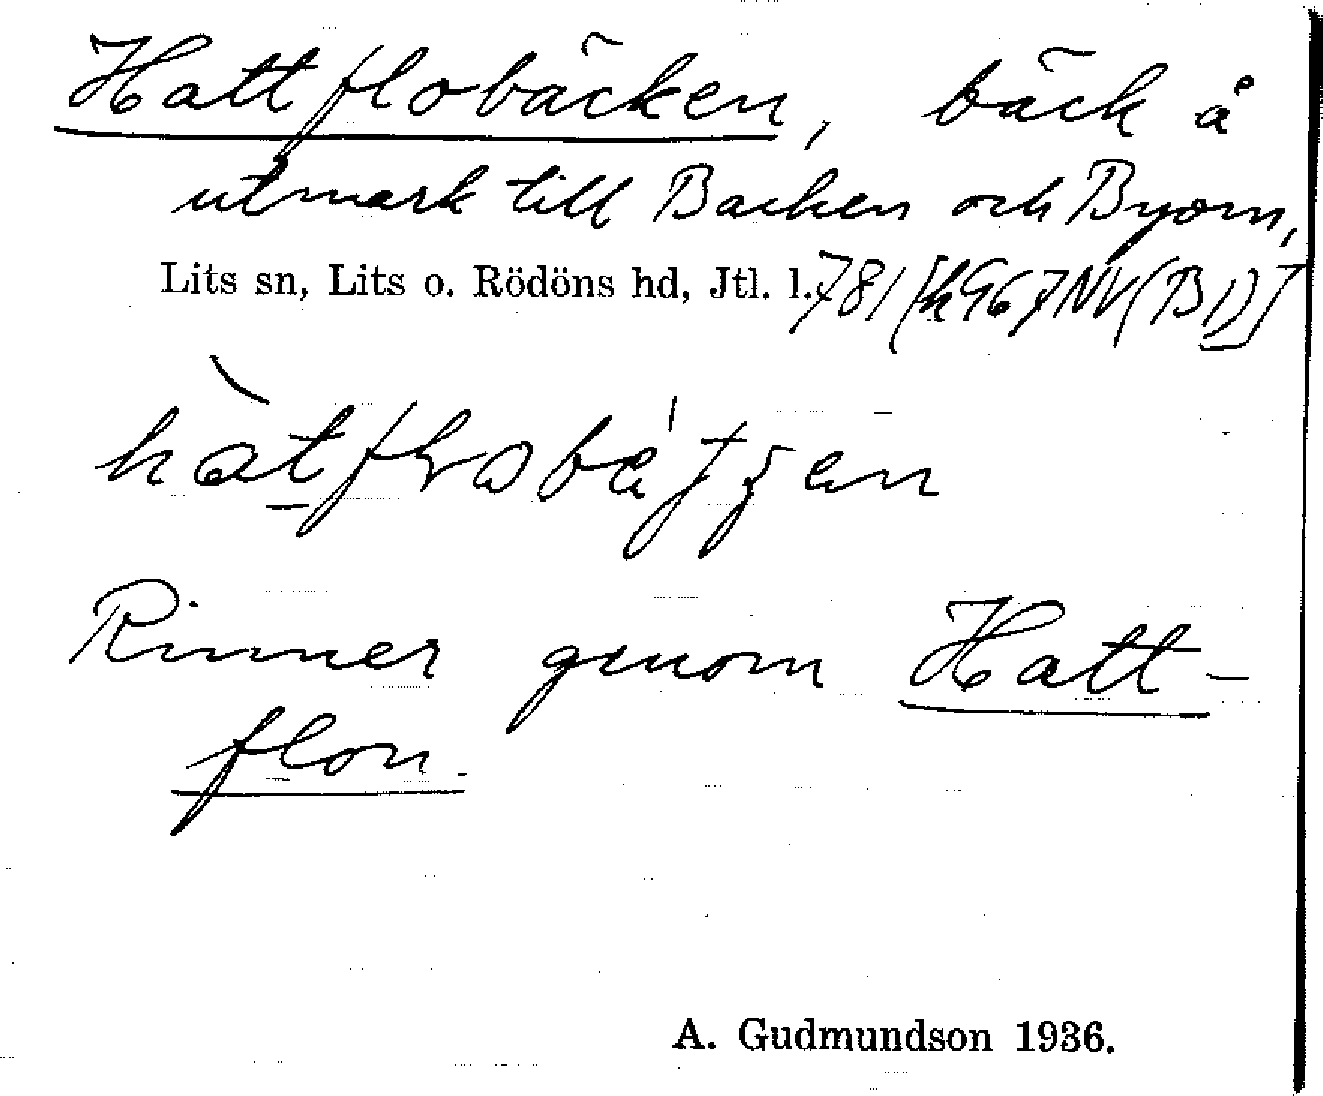 Hattflobäcken, bäck å
utmark till Backen och Byom,
Lits sn, Lits o. Rödöns hd, Jtl. l. 781
Rinner genom Hatt-
flon.
A. Gudmundson 1936.